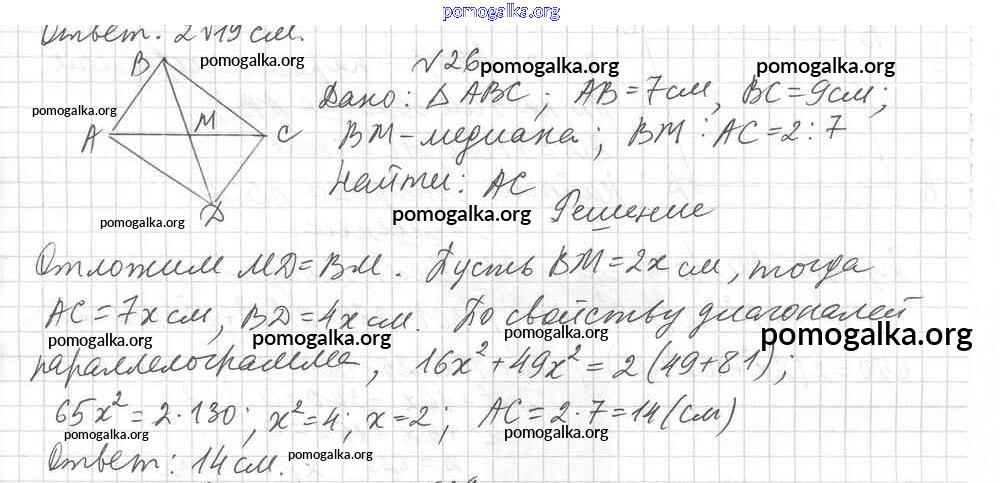 pomogalka.org
Ответ. 2√19 см.
B
pomogalka.org
√26 pomogalka.org
pomogalka.org
pomogalka.org
Дано: Δ ABC; AB = 7 см, BC = 9 см;
A
M
C
BM - медиана; BM : AC = 2 : 7
Найти: AC
D
pomogalka.org
pomogalka.org
Решение
Отложим MD = BM. Пусть BM = 2x см, тогда
AC = 7x см, BD = 4x см. По свойству диагоналей
pomogalka.org
pomogalka.org
pomogalka.org
pomogalka.org
параллелограмма, 16x² + 49x² = 2 (49 + 81);
65x² = 2 · 130; x² = 4; x = 2; AC = 2 · 7 = 14 (см)
pomogalka.org
pomogalka.org
Ответ: 14 см.
pomogalka.org